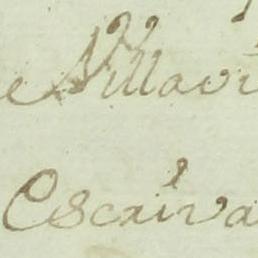 e Villavi
Escriva